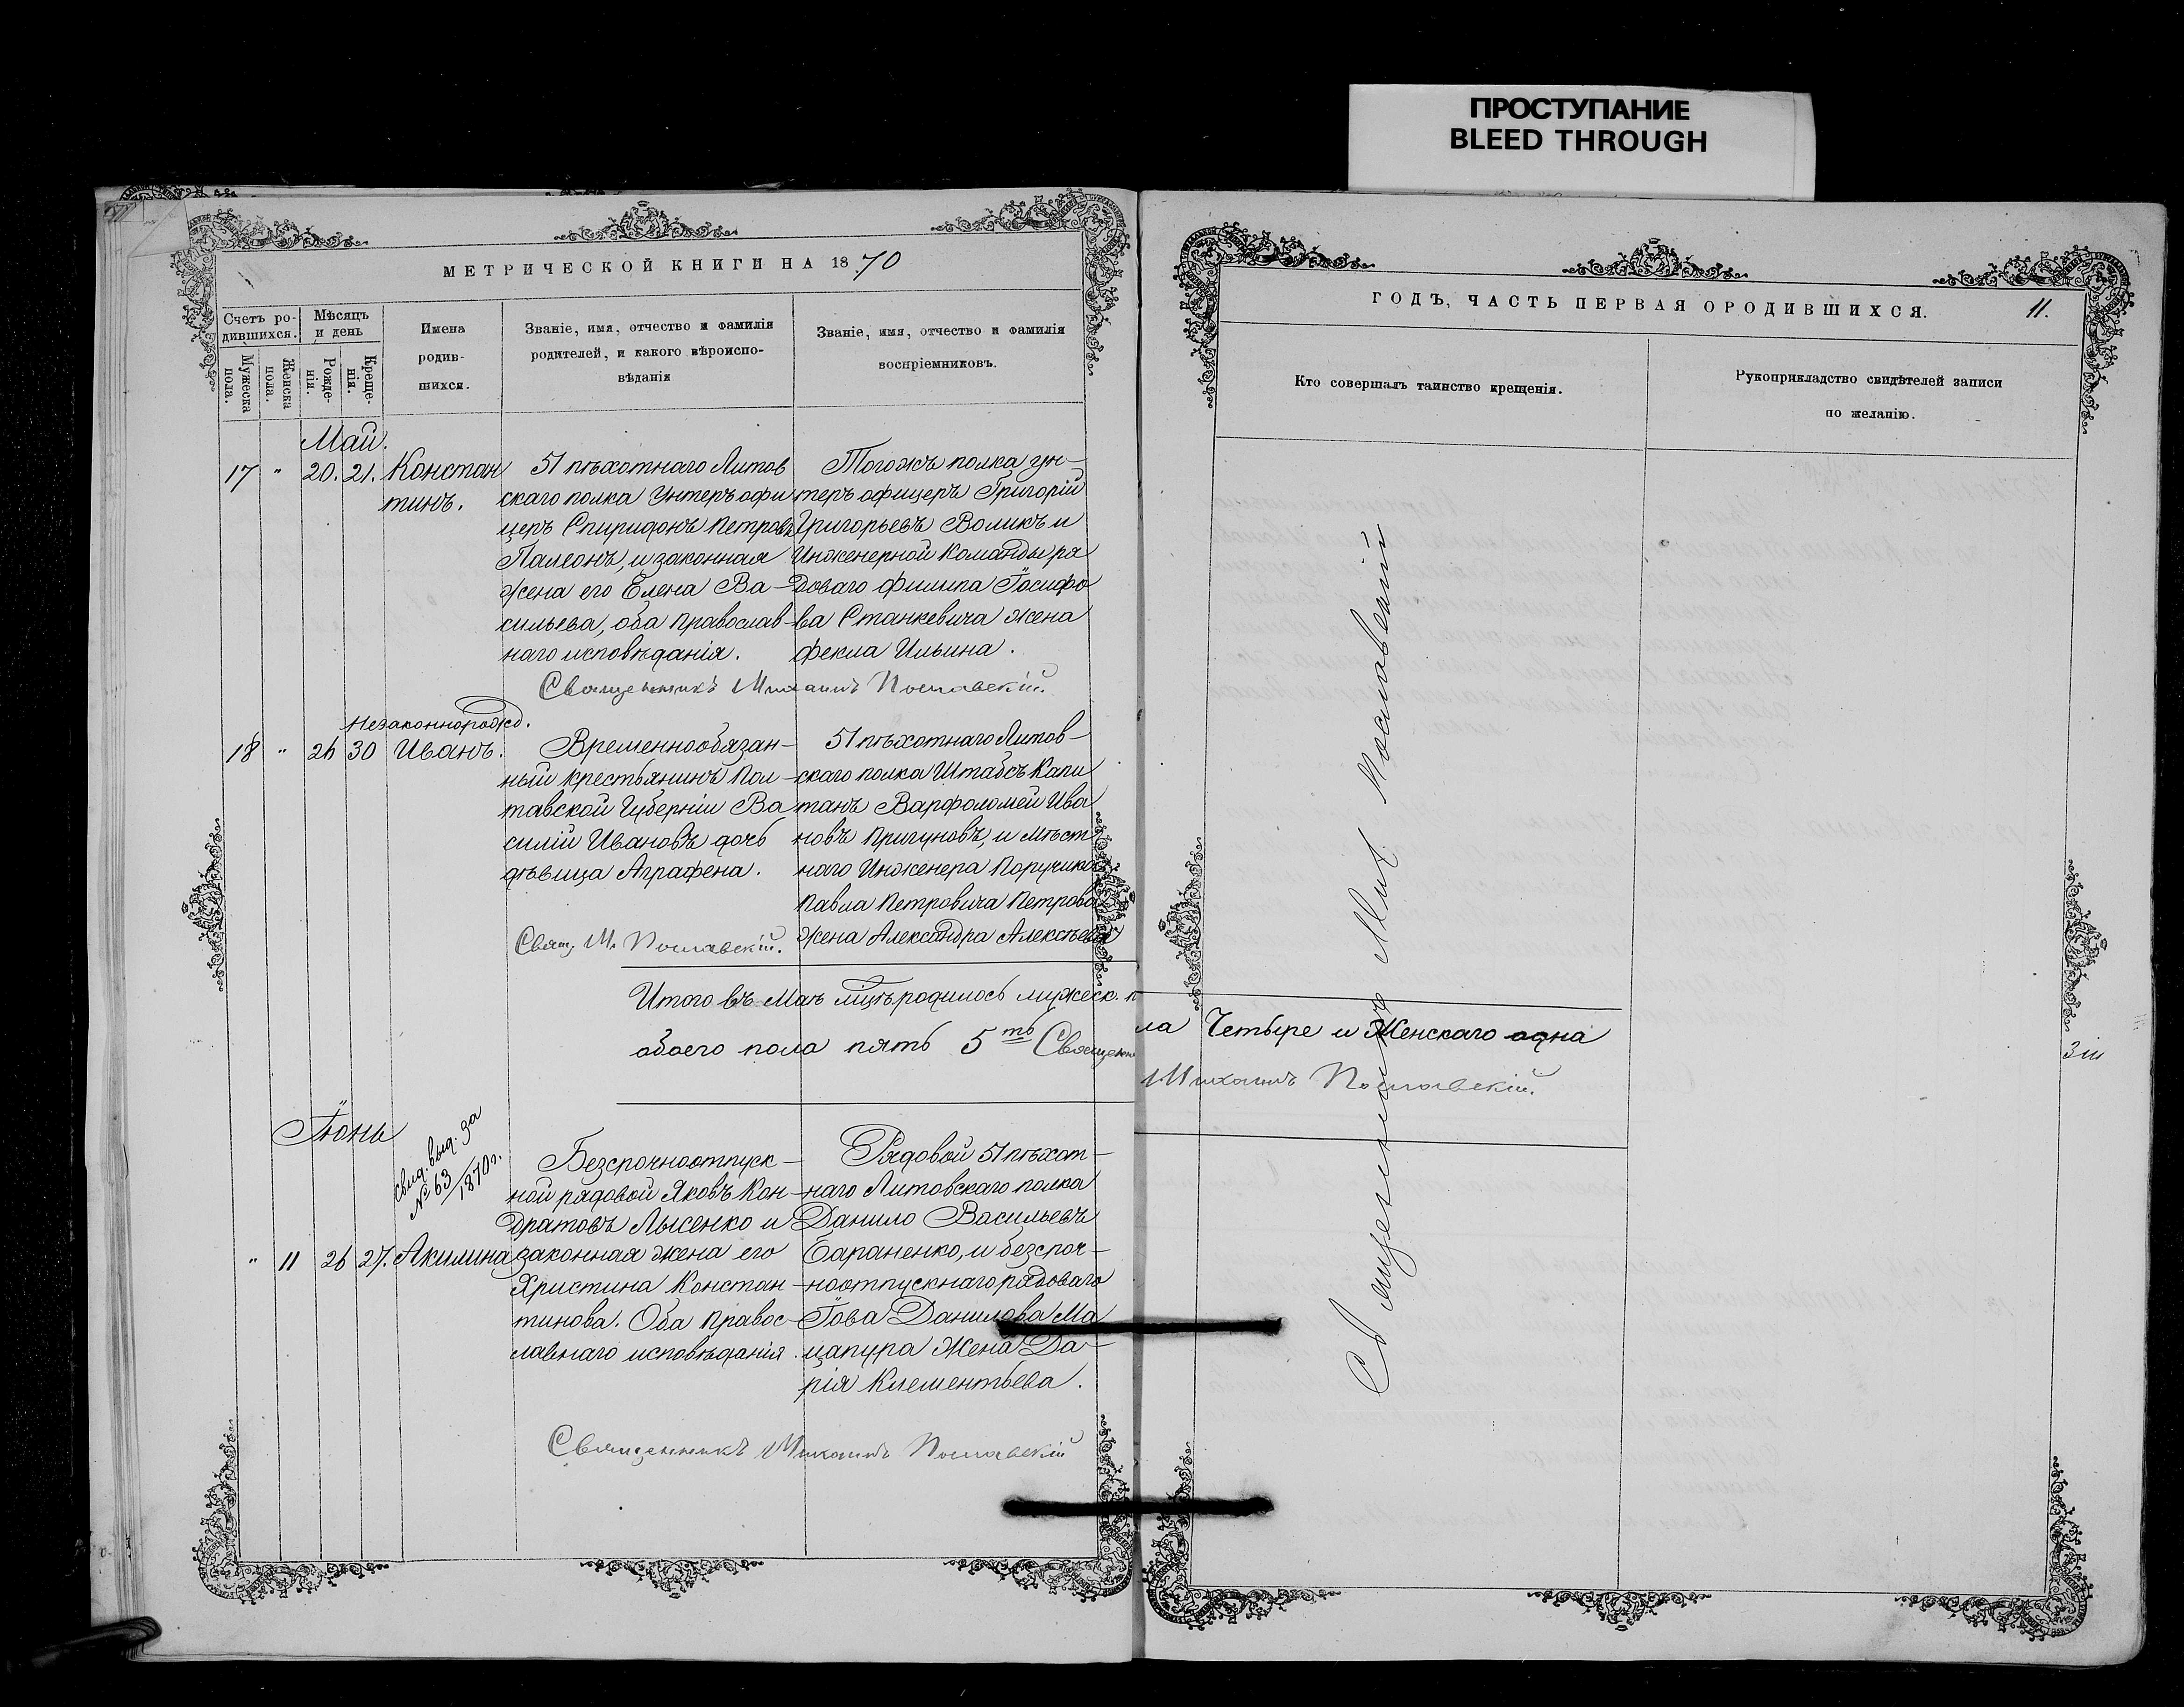 ПРОСТУПАНИЕ
BLEED THROUGH
МЕТРИЧЕСКОЙ КНИГИ НА 1870
Счетъ ро-
дившихся.
Мужеска пола.
Женска пола.
Мѣсяцъ
и день
Рожде-
нія.
Креще-
нія.
Имена
родив-
шихся.
Званіе, имя, отчество и фамилія
родителей, и какого вѣроиспо-
вѣданія
Званіе, имя, отчество и фамилія
воспріемниковъ.
Май.
17 " 20. 21. Констан
тинъ.
51 пѣхотнаго Литов
скаго полка Унтеръ офи
церъ Спиридонъ Петровъ
Палеонъ, и законная
жена его Елена Ва-
сильева, оба православ-
наго исповѣданія.
Тогожъ полка ун-
теръ офицеръ Григорій
Григорьевъ Воликъ и
Инженерной Команды ря
доваго Филипа Іосифо
ва Станкевича жена
Фекла Ильина.
Священникъ Михаилъ
Незаконнорожд.
18 " 26 30 Иванъ.
Временнообязан-
ный крестьянинъ Пол-
тавской Губерніи Ва
силій Ивановъ дочь
дѣвица Аграфена.
51 пѣхотнаго Литов-
скаго полка Штабсъ Капи
танъ Варфоломей Ива
новъ Пригуновъ, и мѣст
наго Инженера Поручика
Павла Петровича Петрова
жена Александра Алексѣева
Свящ. М.
Итого въ Маѣ мцѣ родилось мужеск. п
обоего пола пять 5ть Священн
Іюнь
свид. выд. за
№ 63/1870г.
" 11 26 27. Акилина
Безсрочноотпуск-
ной рядовой Яковъ Кон-
дратовъ Лысенко и
законная жена его
Христина Констан-
тинова. Оба правос-
лавнаго исповѣданія.
Рядовой 51 пѣхот-
наго Литовскаго полка
Данило Васильевъ
Бараненко, и безсроч-
ноотпускнаго рядоваго
Іова Данилова Ма
цапура Жена Да-
рія Клементьева.
Священникъ Михаилъ
ГОДЪ, ЧАСТЬ ПЕРВАЯ О РОДИВШИХСЯ.
11.
Кто совершалъ таинство крещенія.
Рукоприкладство свидѣтелей записи
по желанію.
Священникъ Мих.
ла Четыре и Женскаго одна
Михаилъ